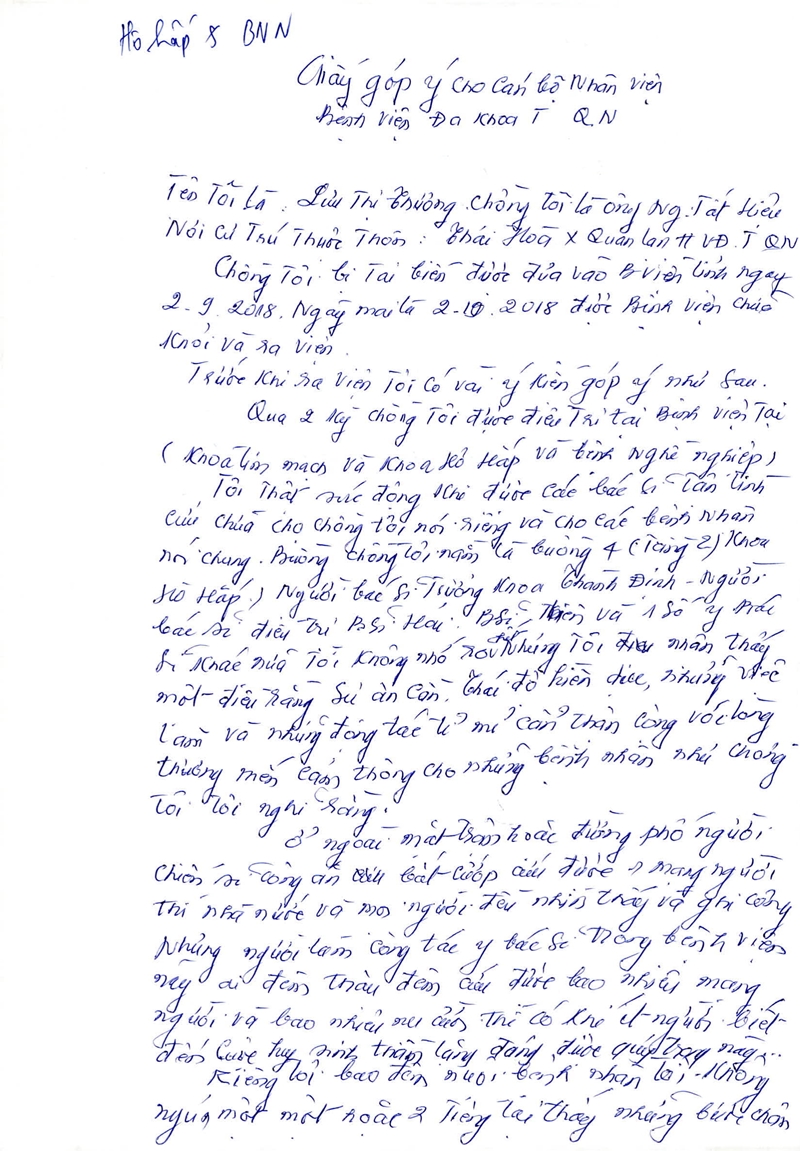 Hô hấp & BNN
Giấy góp ý cho Cán bộ Nhân viện
Bệnh viện Đa Khoa T QN
Tên Tôi là : Lưu Thị Thường. Chồng tôi là ông Ng. Tất Hiếu
Nơi Cư Trú Thuộc Thôn : Thái Hoà X Quan lan H VĐ. T QN
Chồng Tôi bị Tai biến được đưa vào Bviện tỉnh ngay
2-9-2018. Ngày mai là 2-10-2018 được Bệnh viện chữa
Khỏi và ra viện.
Trước Khi ra viện Tôi có vài ý Kiến góp ý như sau.
Qua 2 Kỳ chồng Tôi được điều Trị tại Bệnh viện Tại
(Khoa tim mạch và Khoa Hô Hấp và bệnh Nghề nghiệp)
Tôi Thật xúc động Khi được các bác sĩ Tận Tình
cứu chữa cho chồng tôi nói riêng và cho các bệnh nhân
nói chung. Buồng chồng tôi nằm là buồng 4 (Tầng 2) Khoa
Hô Hấp.) Người bác sĩ Trưởng Khoa Thanh Đình - Người
bác sĩ điều trị BSĩ BSĩ và 1 Số y
sĩ Khác nữa Tôi Không nhớ Nhưng Tôi đều nhận thấy
một điều rằng Sự ân Cần, Thái độ hiền dịu, những việc
làm và những động tác tỉ mỉ cẩn thận cộng với lòng
thương mến cảm thông cho những bệnh nhân như chồng
Tôi Tôi nghĩ rằng.
Ở ngoài mặt trận hoặc đường phố người
chiến sĩ công an bắt cướp cứu được 1 mạng người
thì nhà nước và mọi người đều nhìn thấy và ghi công
Những người làm công tác y bác sĩ Trong bệnh viện
này ai đêm thâu đêm cứu được bao nhiêu mạng
người và bao nhiêu thì có Khi ít người biết
đến Cuộc hy sinh thầm lặng đáng được quý trọng này...
Riêng tôi bao đêm nuôi bệnh nhân tôi Không
ngủ một một hoặc 2 Tiếng lại thấy những bước chân